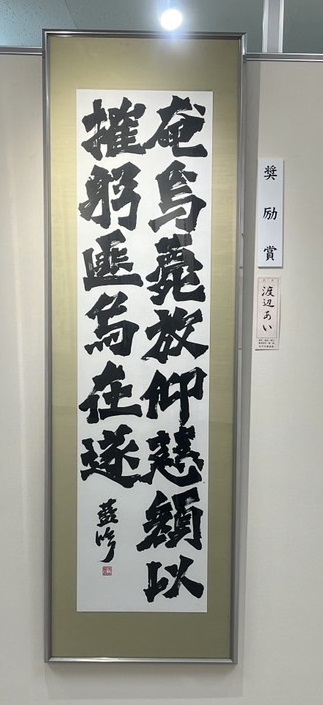 奄焉薨放仰慈顔以
摧躬匪烏在遂
奨励賞
渡辺あい